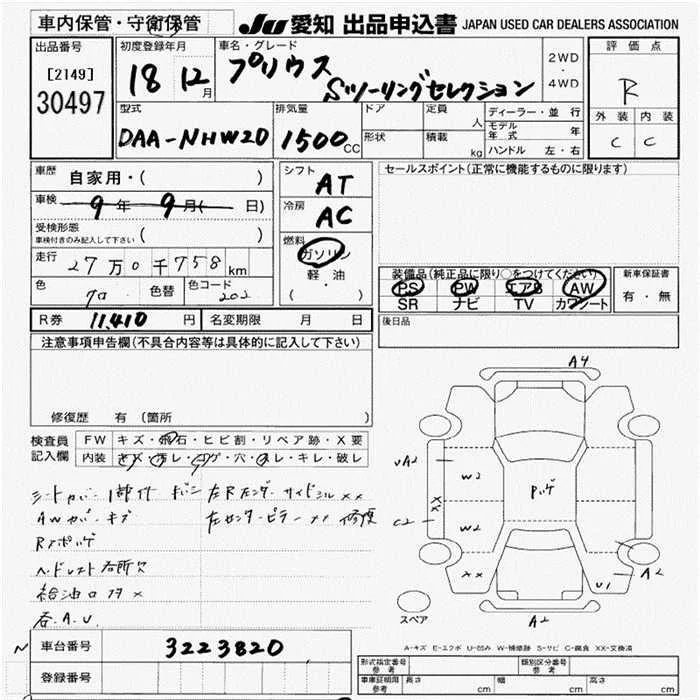 車内保管・守衛保管
JU 愛知 出品申込書 JAPAN USED CAR DEALERS ASSOCIATION
出品番号
[2149]
30497
初度登録年月
18 12月
車名・グレード
プリウス
Sツーリングセレクション
2WD
・
4WD
評価点
R
外装 内装
C C
型式
DAA-NHW20
排気量
1500cc
ドア
形状
定員 人
積載 kg
ディーラー・並行
モデル年式 年
ハンドル 左・右
車歴
自家用・( )
車検
9年 9月( 日)
受検形態
車検付きのみ記入して下さい ( )
走行
27万0千758km
色
クロ
色替
色コード
202
シフト
AT
冷房
AC
燃料
ガソリン
軽・油
( ・ )
セールスポイント(正常に機能するものに限ります)
装備品(純正品に限り○をつけてください)
PS PW エアB AW
SR ナビ TV カワシート
新車保証書
有・無
R券 11,410 円
名変期限 月 日
後日品
注意事項申告欄(不具合内容等は具体的に記入して下さい)
修復歴 有 (箇所 )
検査員
記入欄
FW キズ・飛石・ヒビ割・リペア跡・X要
内装 キズ・汚レ・コゲ・穴・スレ・キレ・破レ
AWガバ・キズ
ヘッドレスト
給油口
A4
A2
W2
Pハゲ
C2
XX
W2
XX
U1
A2
A2
スペア
A-キズ E-エクボ U-凹み W-補修跡 S-サビ C-腐食 XX-交換済
車台番号 3223820
登録番号
形式指定番号
参考
類別区分番号
参考
車庫証明用
参考
長さ cm
幅 cm
高さ cm